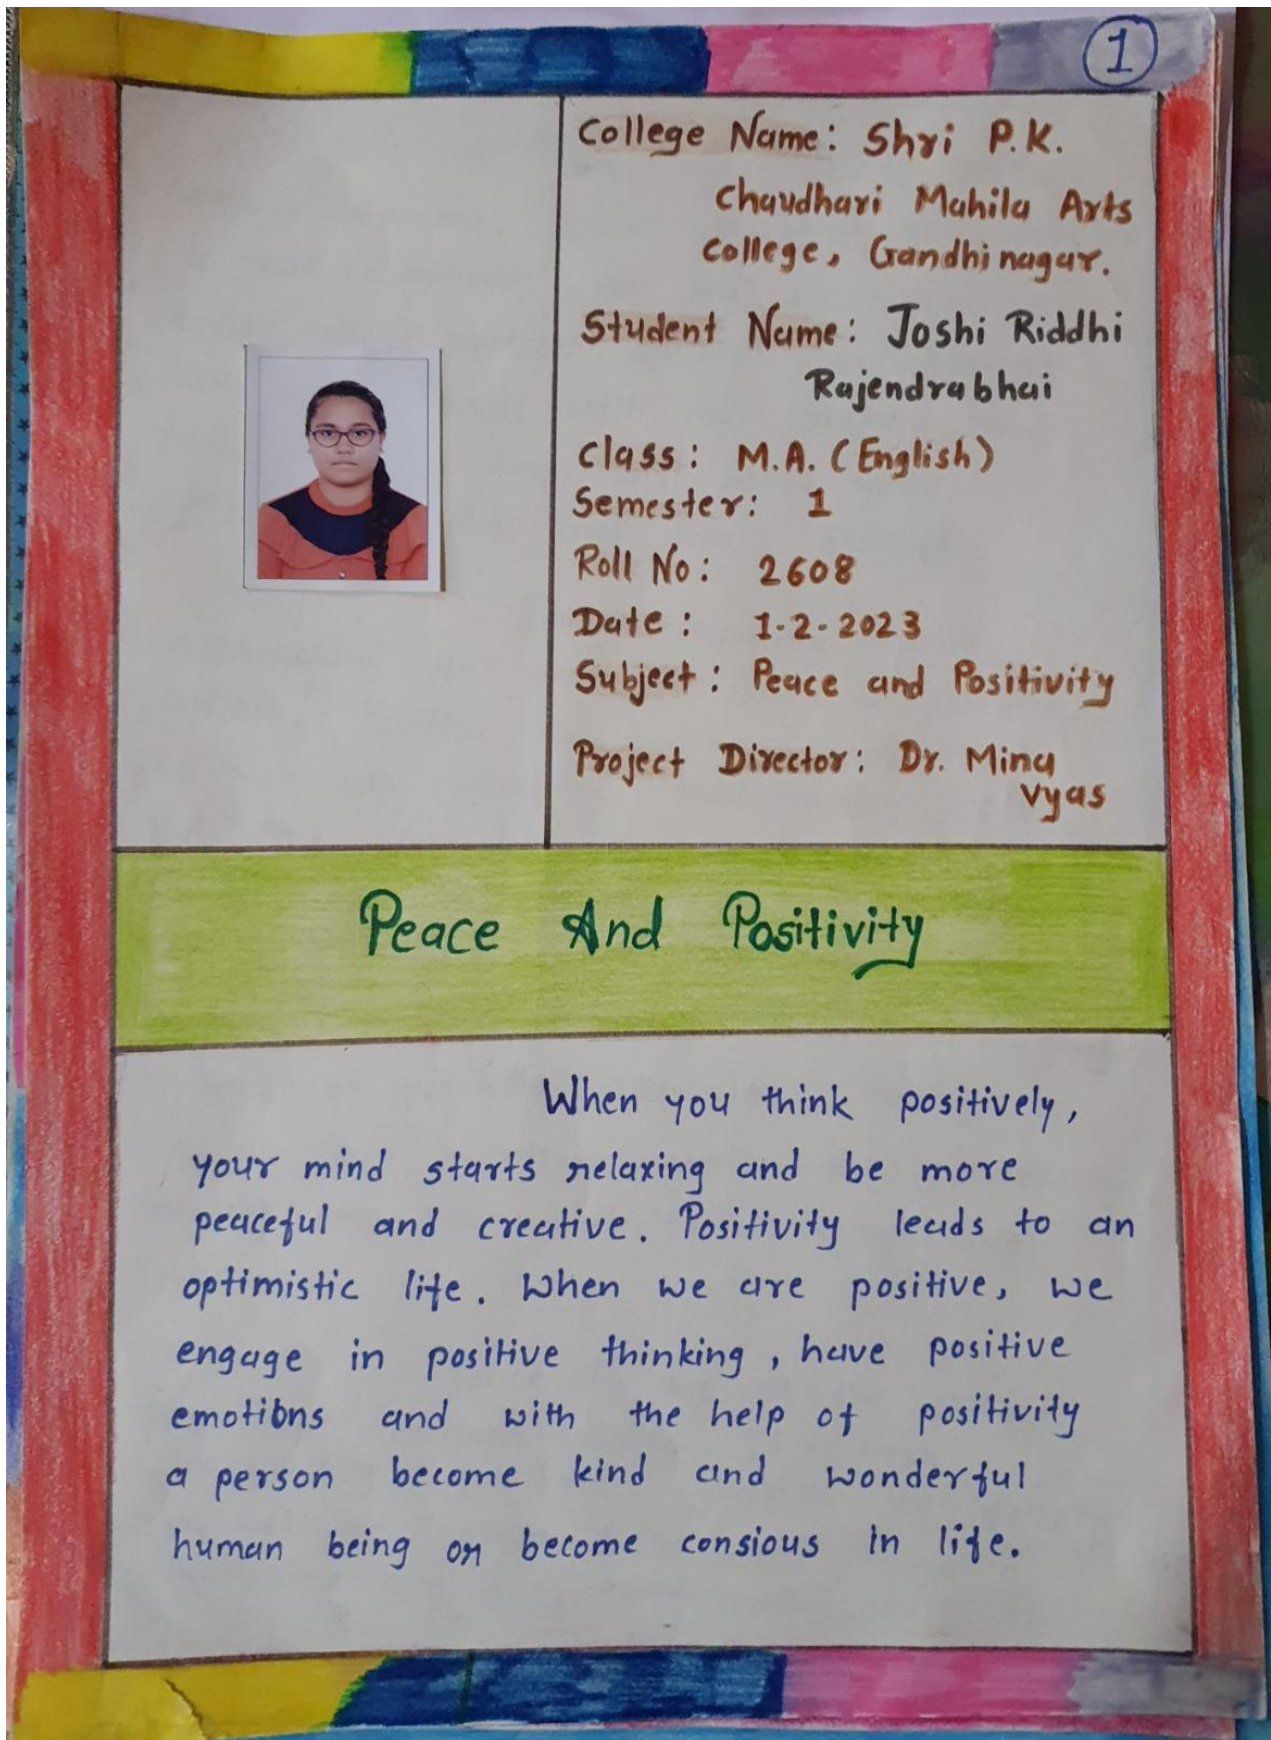 1
College Name: Shri P.K.
Chaudhari Mahila Arts
College, Gandhinagar.
Student Name: Joshi Riddhi
Rajendrabhai
Class: M.A. (English)
Semester: 1
Roll No: 2608
Date: 1-2-2023
Subject: Peace and Positivity
Project Director: Dr. Mina
Vyas
Peace And Positivity
When you think positively,
your mind starts relaxing and be more
peaceful and creative. Positivity leads to an
optimistic life. When we are positive, we
engage in positive thinking, have positive
emotions and with the help of positivity
a person become kind and wonderful
human being or become consious in life.